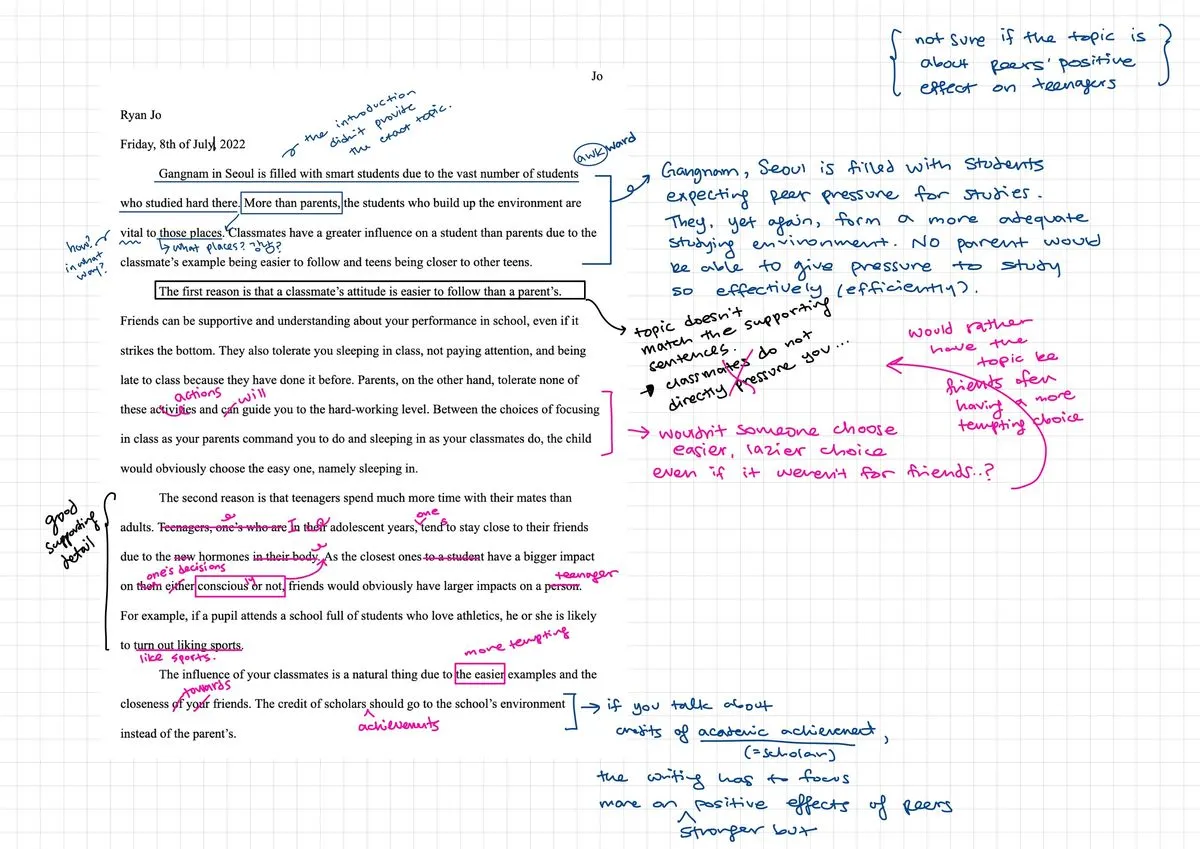 not sure if the topic is
about peers' positive
effect on teenagers
Jo
Ryan Jo
Friday, 8th of July, 2022
the introduction
didn't provide
the exact topic.
awkward
Gangnam in Seoul is filled with smart students due to the vast number of students
who studied hard there. More than parents, the students who build up the environment are
vital to those places. Classmates have a greater influence on a student than parents due to the
classmate's example being easier to follow and teens being closer to other teens.
how?
in what
way?
what places? 강남?
Gangnam, Seoul is filled with students
expecting peer pressure for studies.
They, yet again, form a more adequate
studying environment. No parent would
be able to give pressure to study
so effectively (efficiently).
The first reason is that a classmate's attitude is easier to follow than a parent's.
Friends can be supportive and understanding about your performance in school, even if it
strikes the bottom. They also tolerate you sleeping in class, not paying attention, and being
late to class because they have done it before. Parents, on the other hand, tolerate none of
actions will
these activities and can guide you to the hard-working level. Between the choices of focusing
in class as your parents command you to do and sleeping in as your classmates do, the child
would obviously choose the easy one, namely sleeping in.
topic doesn't
match the supporting
sentences.
classmates do not
directly pressure you...
would rather
have the
topic be
friends ofen
having a more
tempting choice
wouldn't someone choose
easier, lazier choice
even if it weren't for friends..?
good
supporting
detail
The second reason is that teenagers spend much more time with their mates than
e one
adults. Teenagers, one's who are In their adolescent years, tends to stay close to their friends
e
due to the new hormones in their body. As the closest ones to a student have a bigger impact
one's decisions ly teenager
on them either conscious or not, friends would obviously have larger impacts on a person.
For example, if a pupil attends a school full of students who love athletics, he or she is likely
to turn out liking sports.
like sports.
more tempting
The influence of your classmates is a natural thing due to the easier examples and the
towards
closeness of your friends. The credit of scholars should go to the school's environment
achievements
instead of the parent's.
if you talk about
credits of academic achievement,
(=scholar)
the writing has to focus
more on positive effects of peers
stronger but